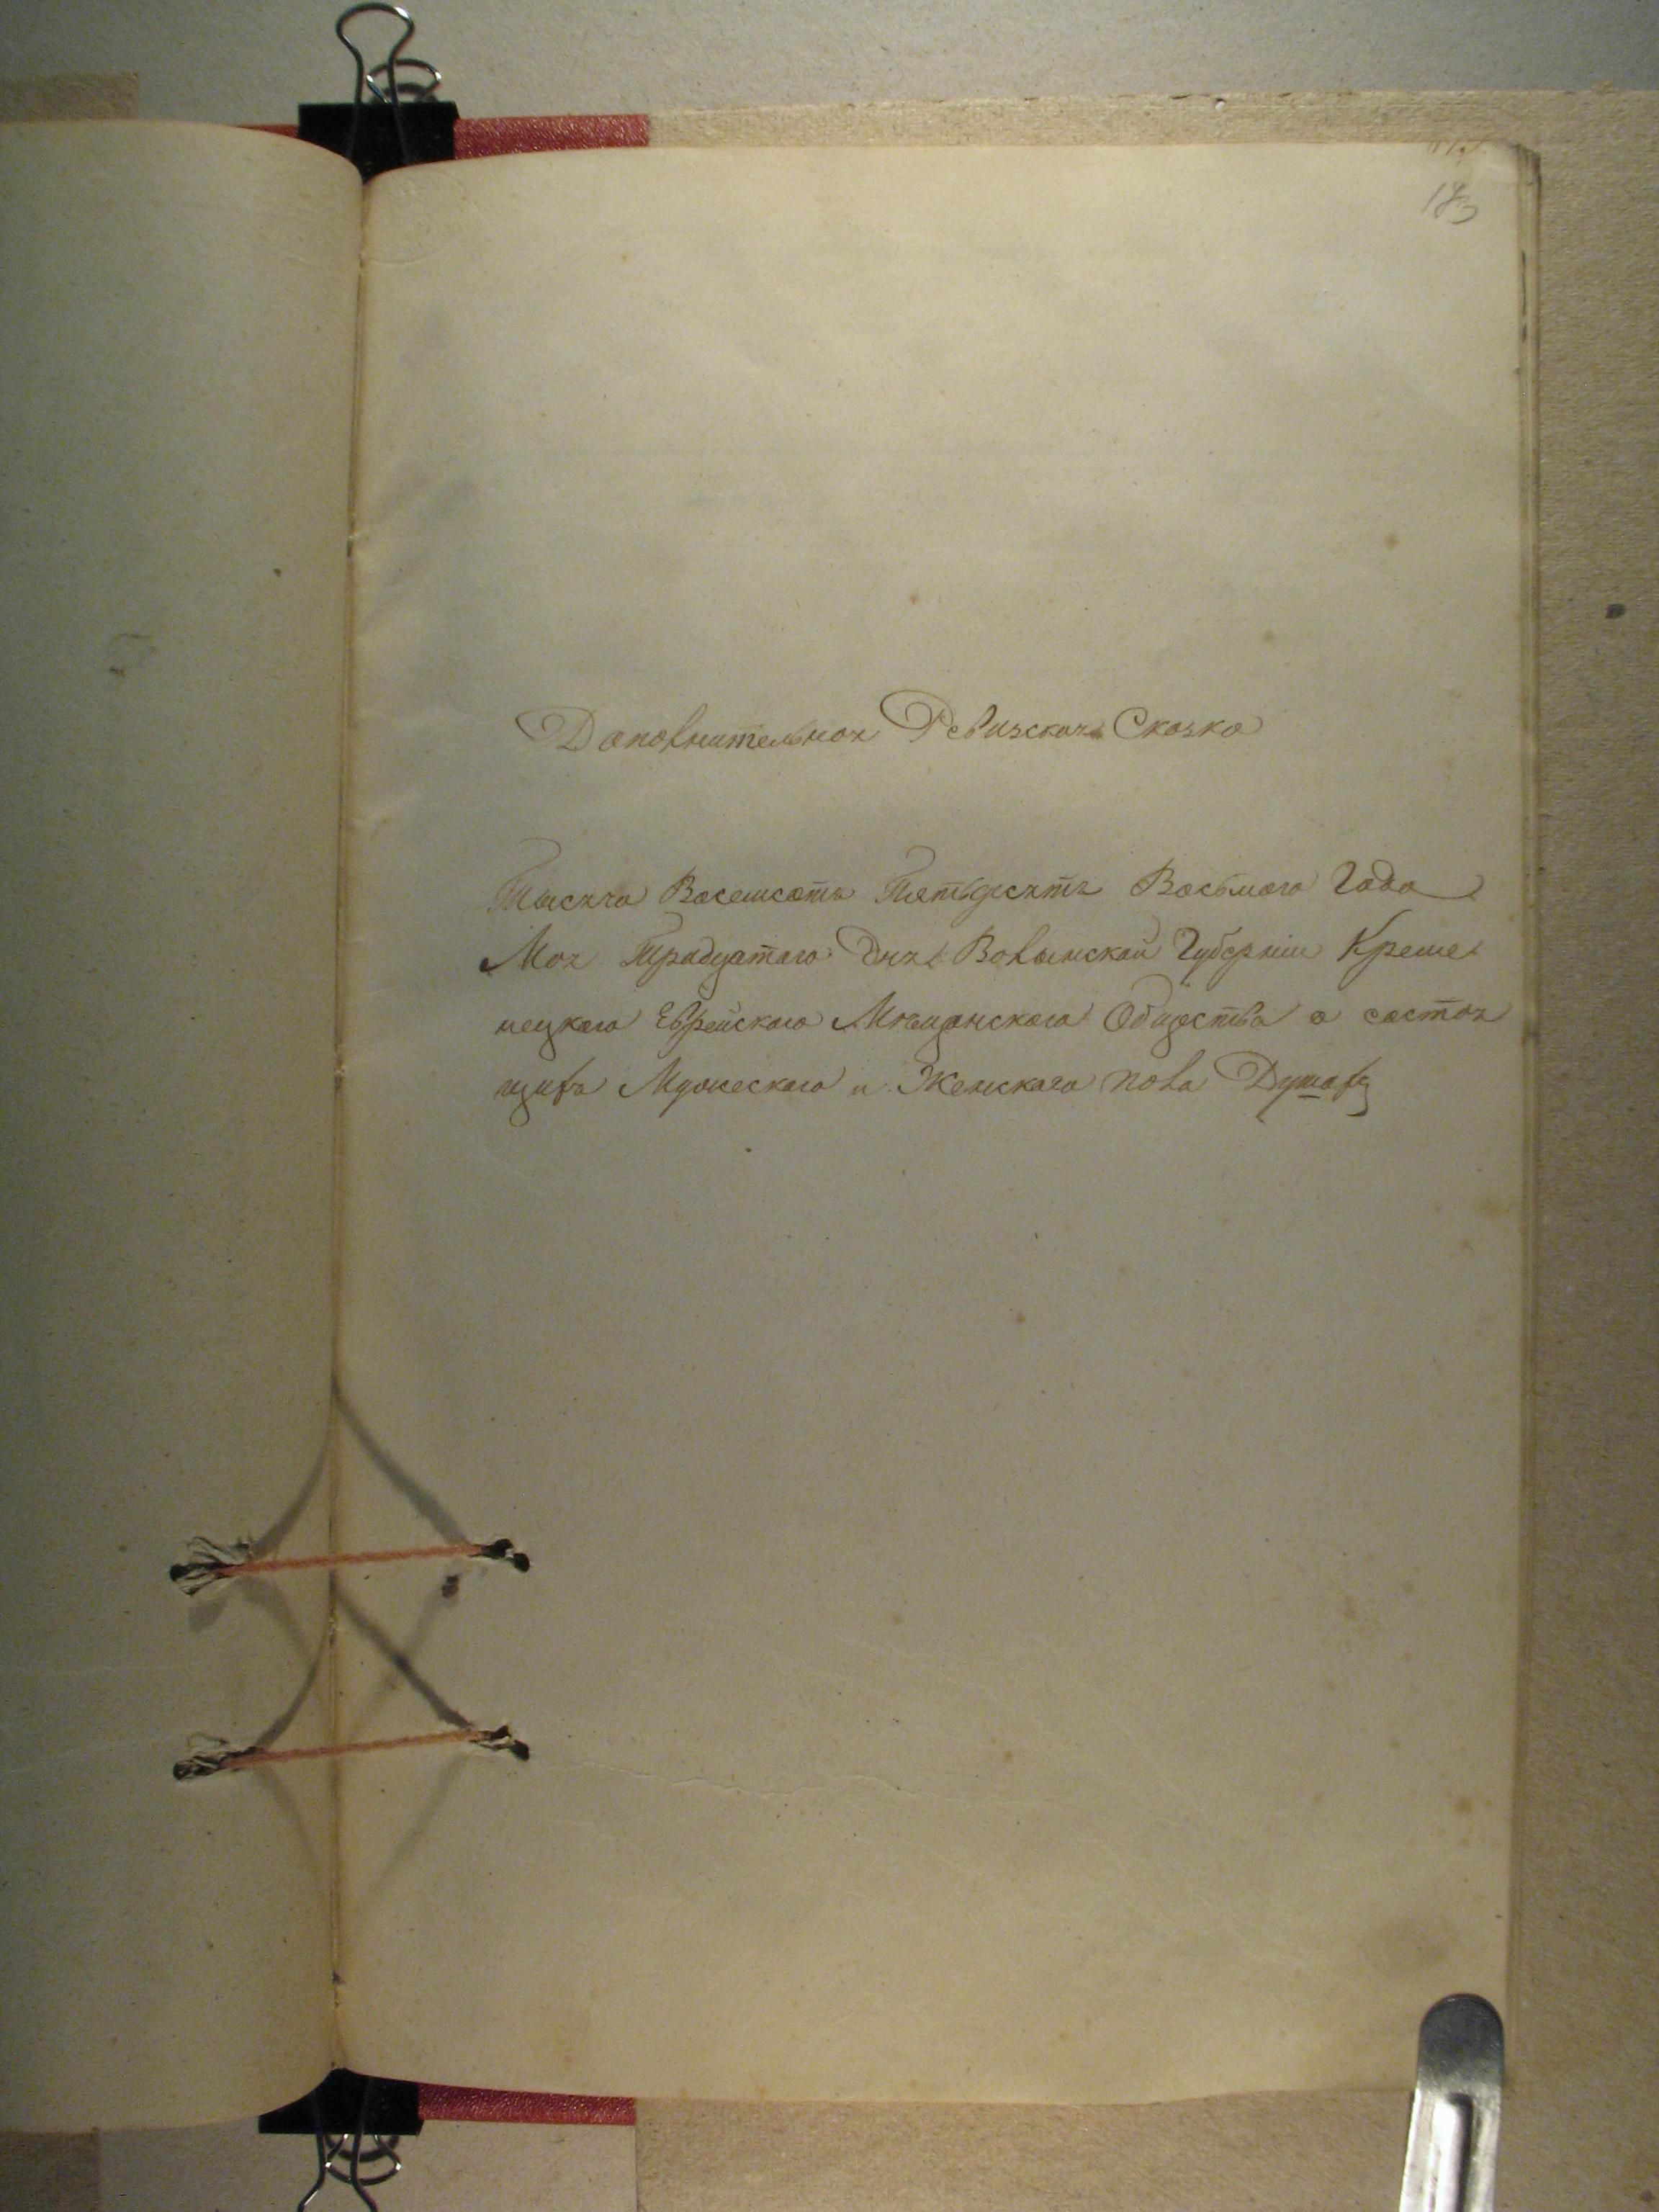 183
Дополнительная Ревизская Сказка
Тысяча Восемсотъ Пятьдесятъ Восьмого Года
Мая Традцатаго Дня Волынской Губерніи Креме
нецкаго Еврейского Мѣщанского Общества о состоя
щихъ Мужескаго и Женскаго пола Душахъ